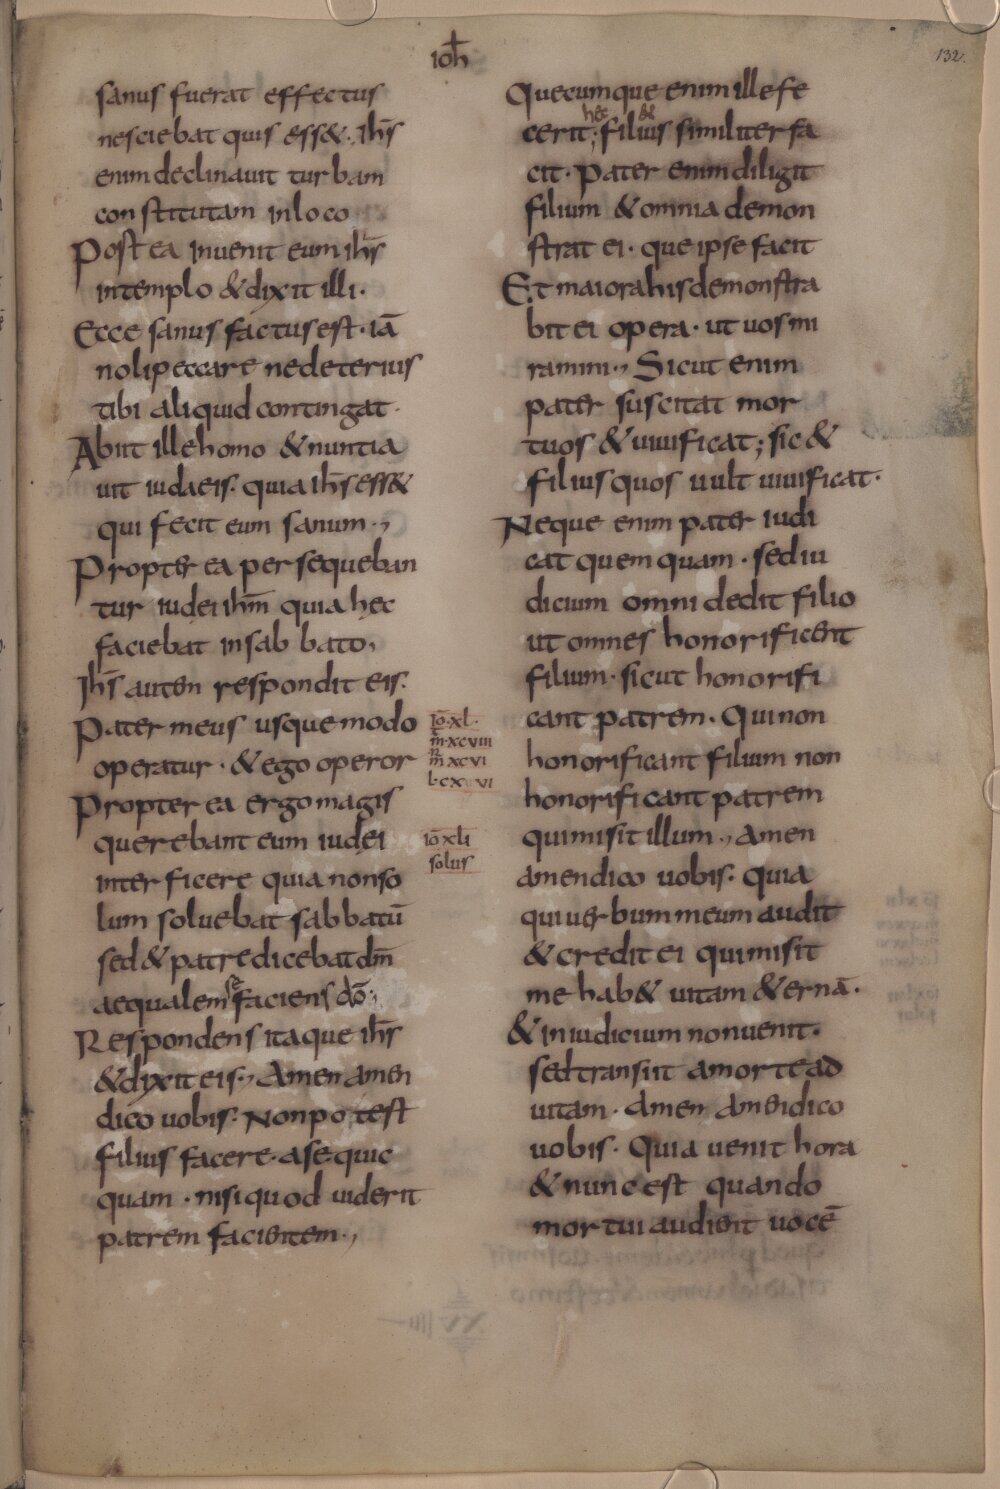 ioh̄
132.
sanus fuerat effectus
nesciebat quis ess&. ih̄s
enim declinauit turbam
constitutam in loco
Post ea inuenit eum ih̄s
intemplo & dixit illi.
Ecce sanus factus est. iā
noli peccare ne deterius
tibi aliquid contingat.
Abiit ille homo & nuntia
uit iudaeis. quia ih̄s ess&
qui fecit eum sanum.,
Propter ea persequeban
tur iudei ih̄m quia hec
faciebat in sabbato,
Ih̄s autem respondit eis.
Pater meus usque modo
operatur. & ego operor
Propter ea ergo magis
querebant eum iudei
interficere quia non so
lum soluebat sabbatū
sed & patre dicebat dm̄
aequalem se faciens dō.,
Respondens itaque ih̄s
& dixit eis., Amen amen
dico uobis. Non potest
filius facere. a se quic
quam. nisi quod uiderit
patrem facientem.,
iō.xl.
m̄.xcviii
m̄ xcvi
iō xli
solus
Quecumque enim ille fe
cerit; hec & filius similiter fa
cit. Pater enim diligit
filium & omnia demon
strat ei. que ipse facit
Et maiora his demonstra
bit ei opera. ut uos mi
ramini., Sicut enim
pater suscitat mor
tuos & uiuificat; sic &
filius quos uult uiuificat.
Neque enim pater iudi
cat quemquam. sed iu
dicium omni dedit filio
ut omnes honorificent
filium. sicut honorifi
cant patrem. Qui non
honorificant filium non
honorificant patrem
qui misit illum., Amen
amen dico uobis. quia
qui uerbum meum audit
& credit ei qui misit
me hab& uitam &ernā.
& in iudicium non uenit.
sed transiit a morte ad
uitam. Amen amen dico
uobis. Quia uenit hora
& nunc est quando
mortui audient uocē